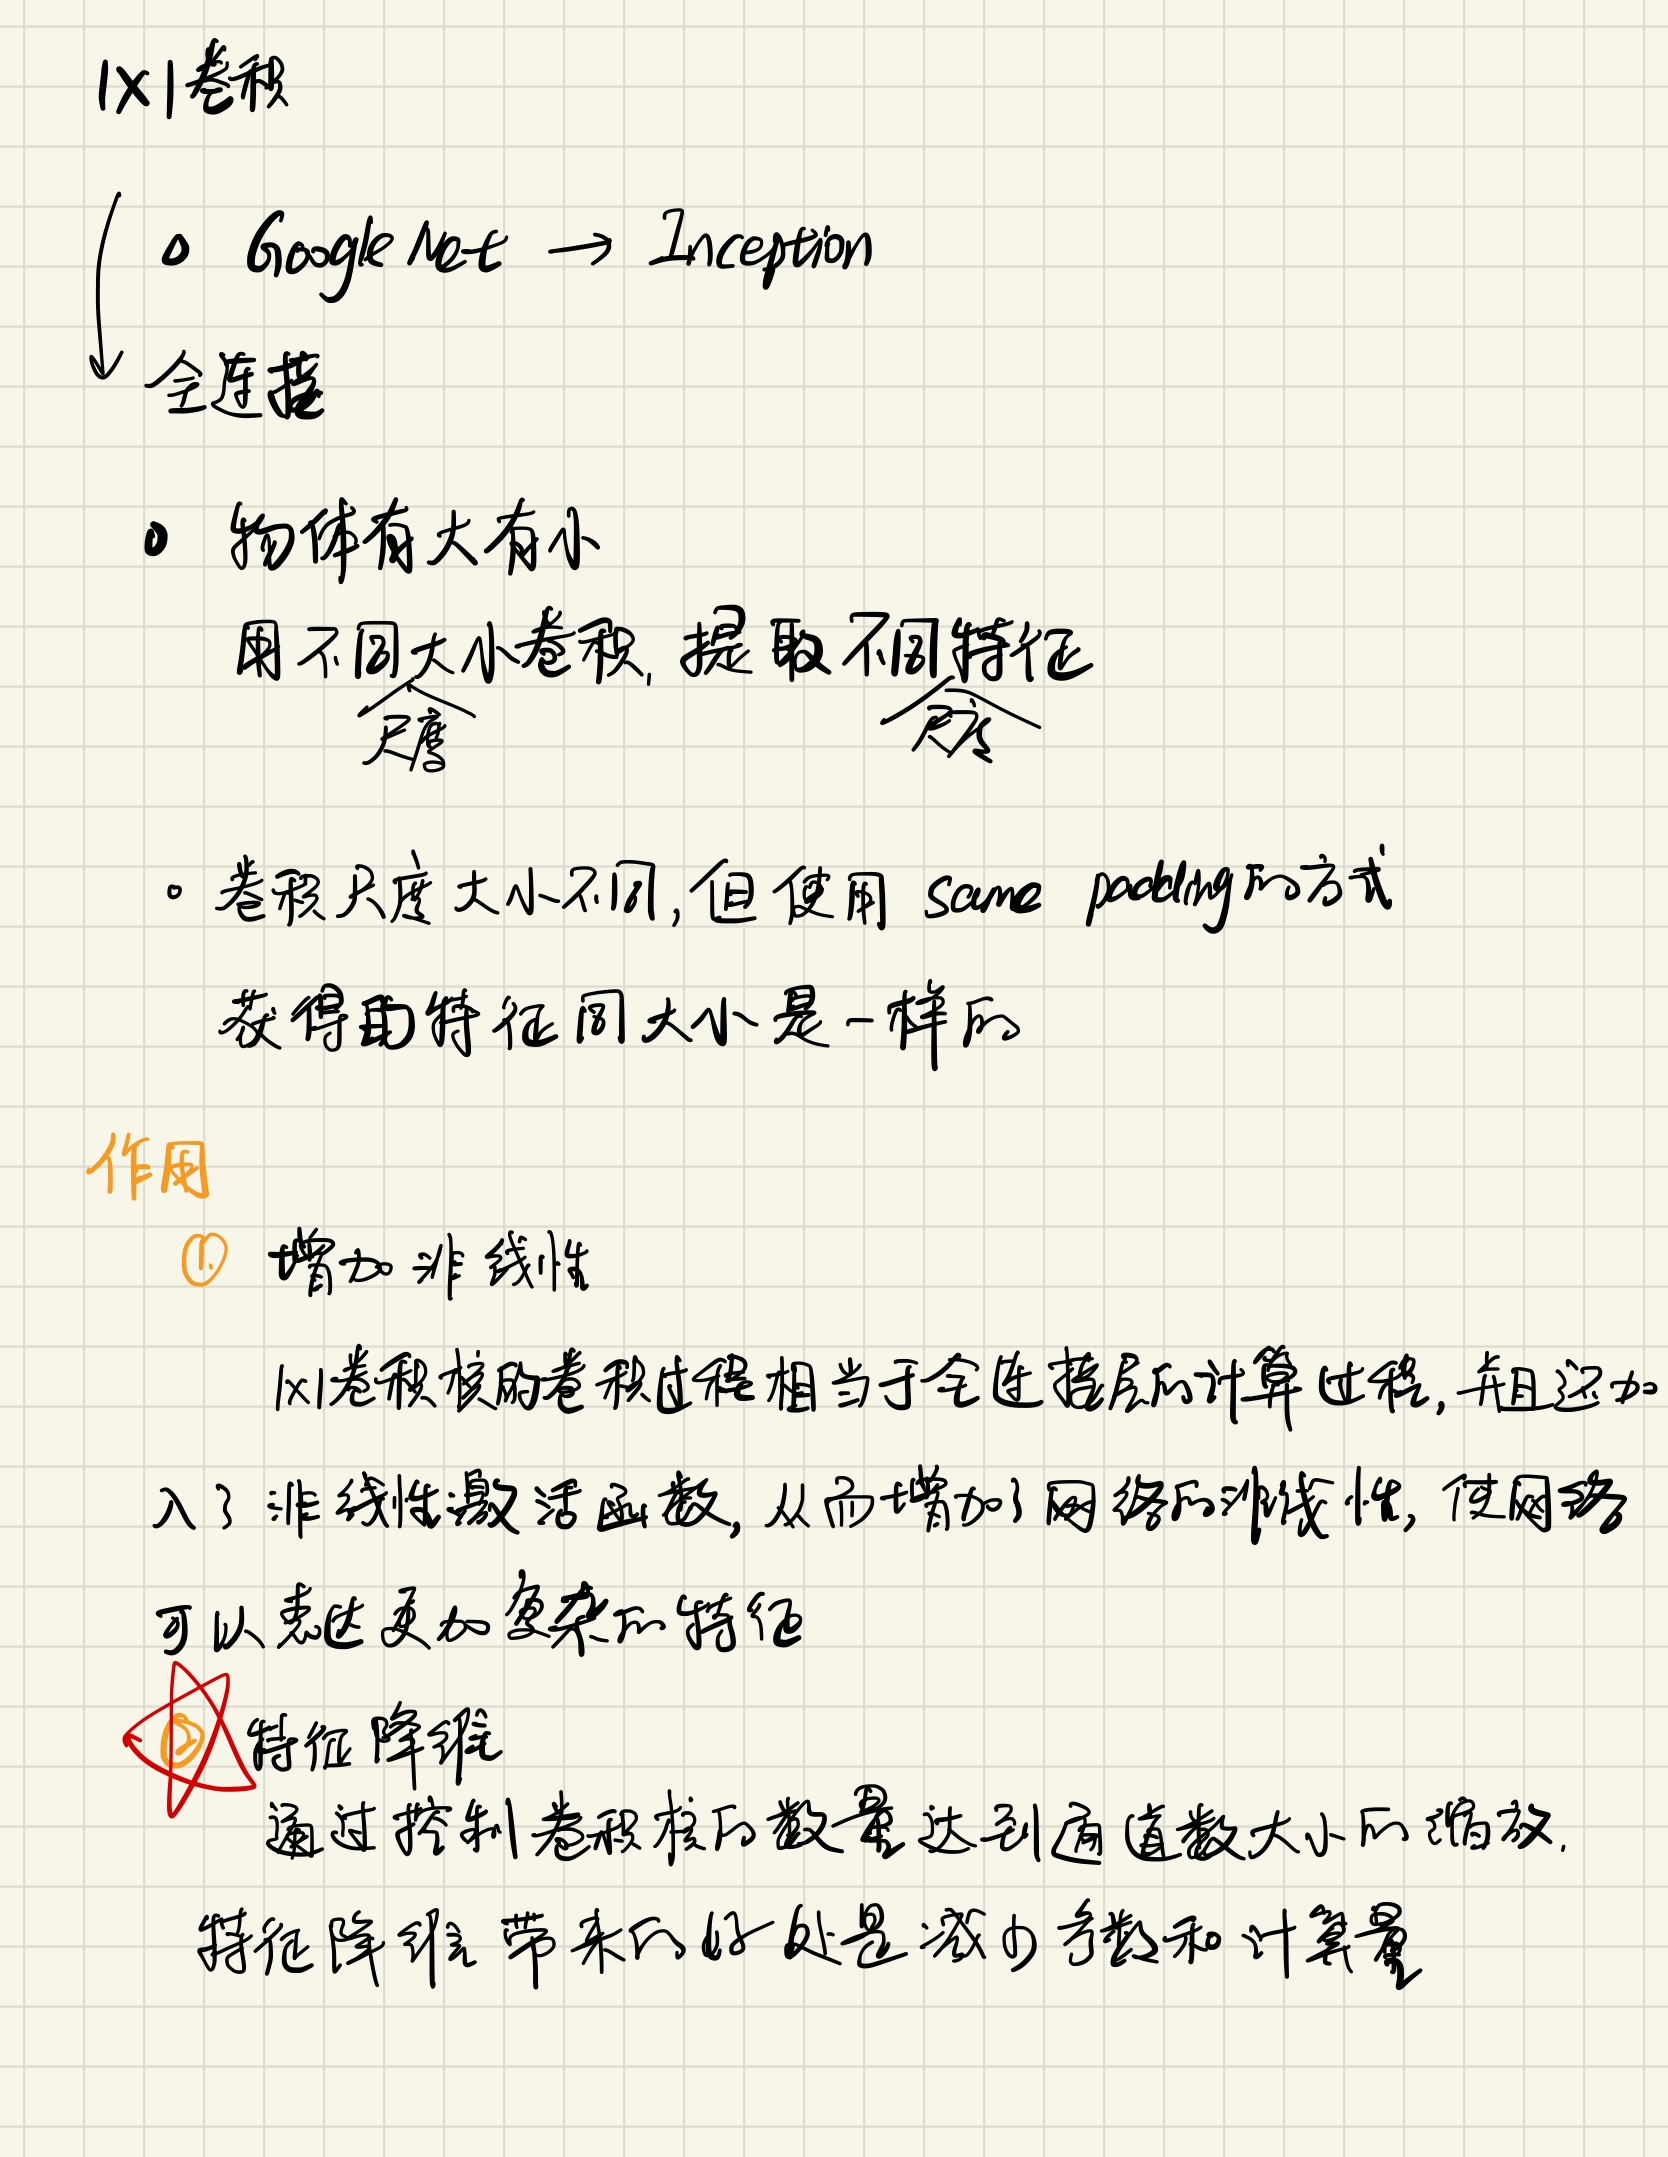 1×1卷积
o GoogleNet → Inception
全连接
o 物体有大有小
用不同大小卷积,提取不同特征
尺度 尺度
o 卷积尺度大小不同,但使用 same padding的方式
获得的特征图大小是一样的
作用
① 增加非线性
1×1卷积核的卷积过程相当于全连接层的计算过程,并且还加
入了非线性激活函数,从而增加了网络的非线性,使网络
可以表达更加复杂的特征
② 特征降维
通过控制卷积核的数量达到通道数大小的缩放.
特征降维带来的好处是减少参数和计算量